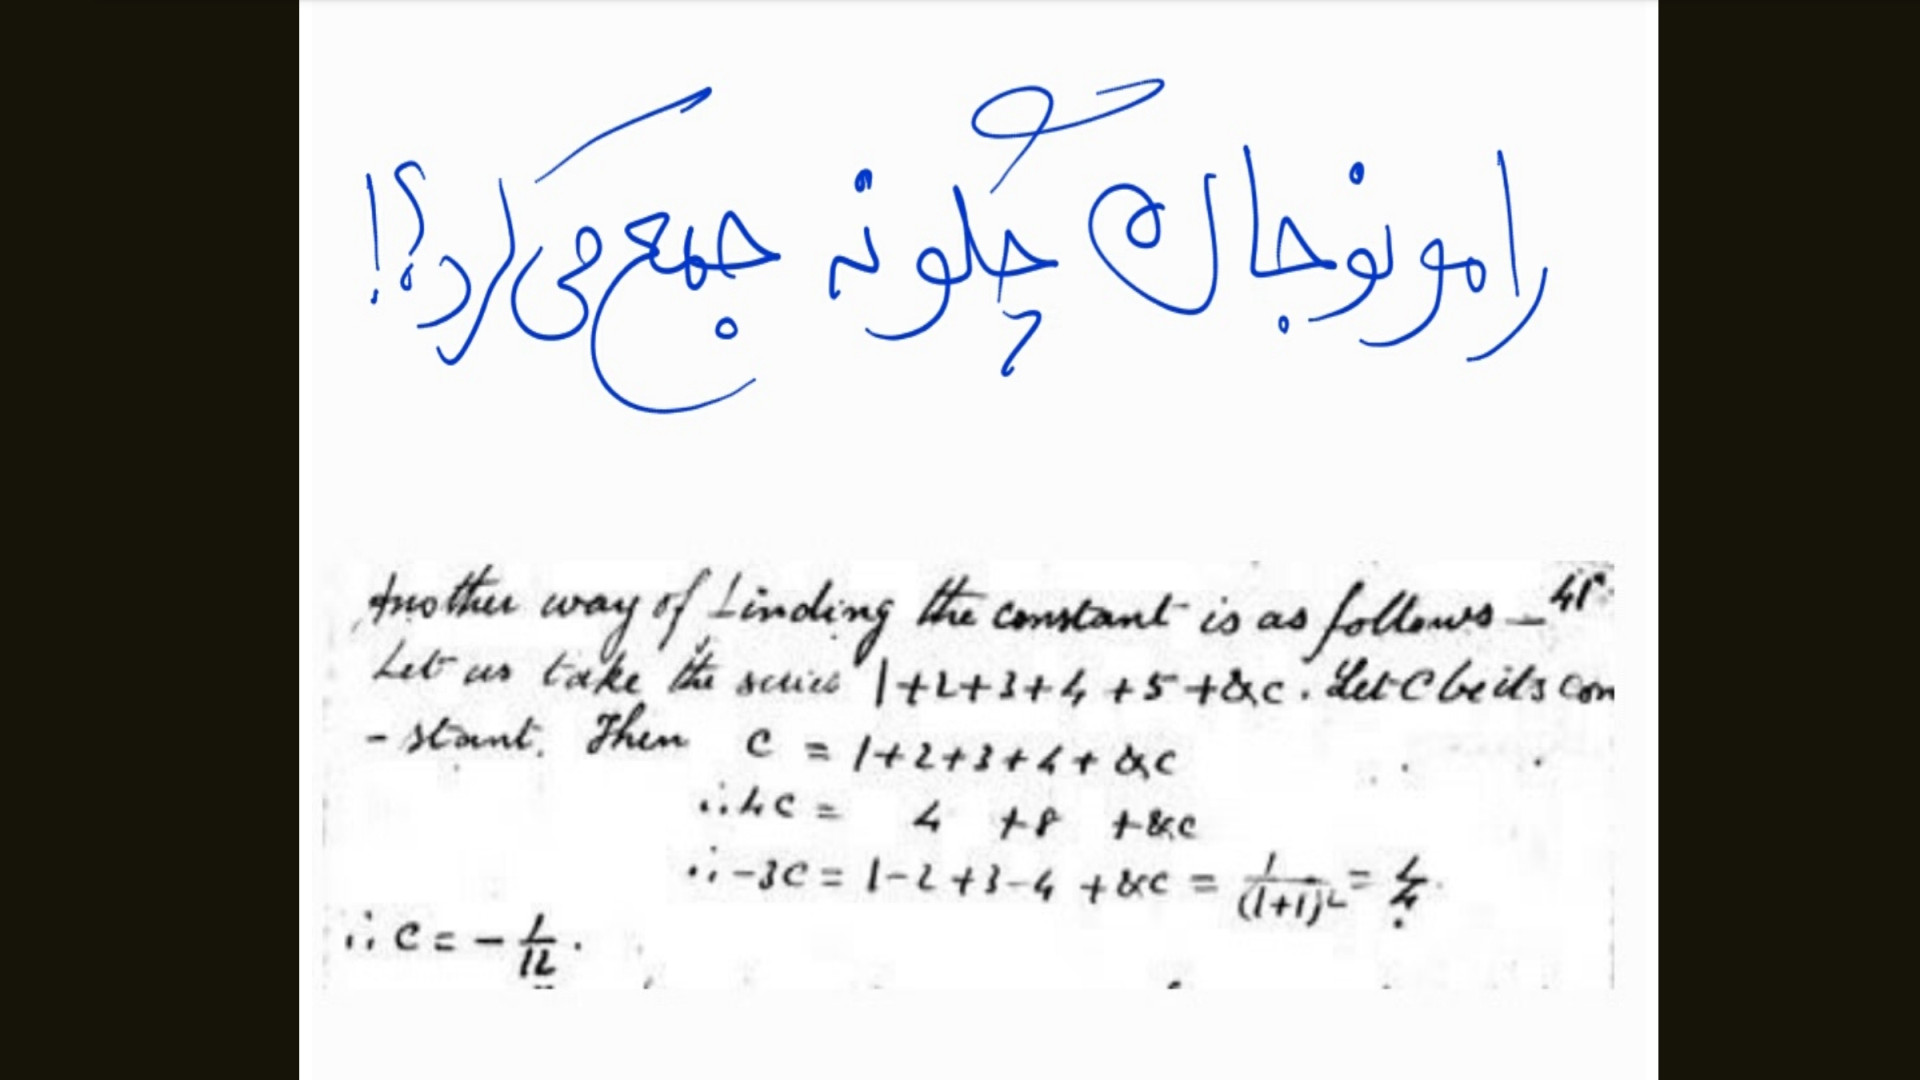 رامونوجان چگونه جمع می‌کرد؟!
Another way of finding the constant is as follows — 41
Let us take the series 1+2+3+4+5+&c. Let C be its con
-stant. Then C = 1+2+3+4+&c
∴4C = 4 +8 +&c
∴-3C = 1-2+3-4+&c = 1/(1+1)² = 1/4.
∴ C = -1/12.